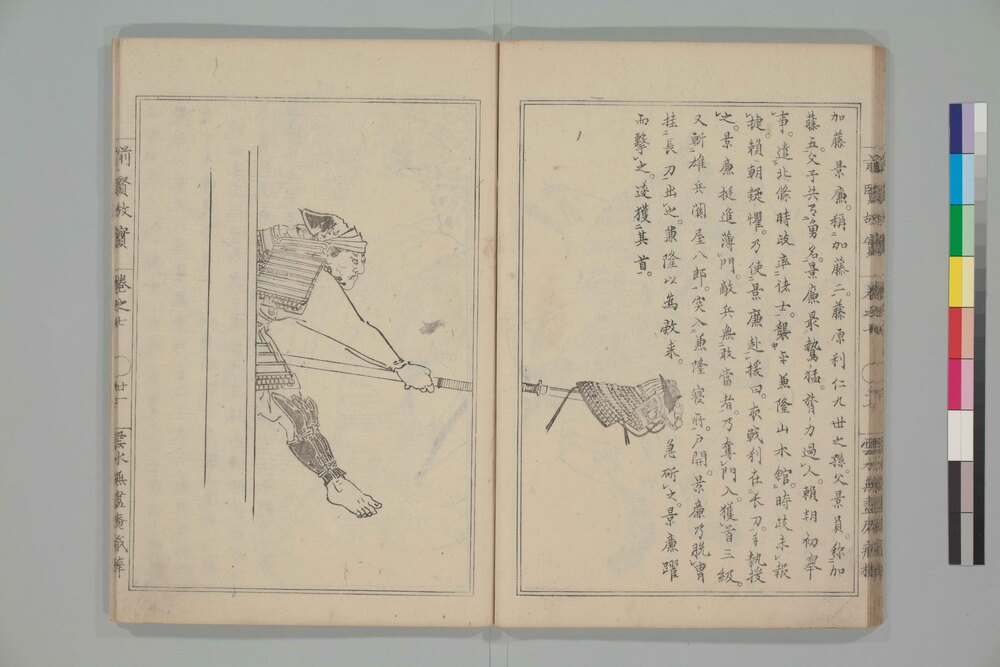 加藤景廉。稱加藤二。藤原利仁九世之孫。父景員。称加
藤五。父子共有勇名。景廉最驁猛。膂力過人。頼朝初舉
事。遣北條時政率諸士。襲平兼隆山木舘。時政未報
捷。頼朝疑懼。乃使景廉赴援曰。夜戦利在長刀。手執授
之。景廉挺進薄門。敵兵無敢當者。乃奪門入。獲首三級。
又斬雄兵関屋八郎。突入兼隆寝所。戸開。景廉乃脱冑
挂長刀出之。兼隆以為敵来。急斫之。景廉躍
而撃之。遂獲其首。
前賢故實
卷之七
雲水無盡庵蔵